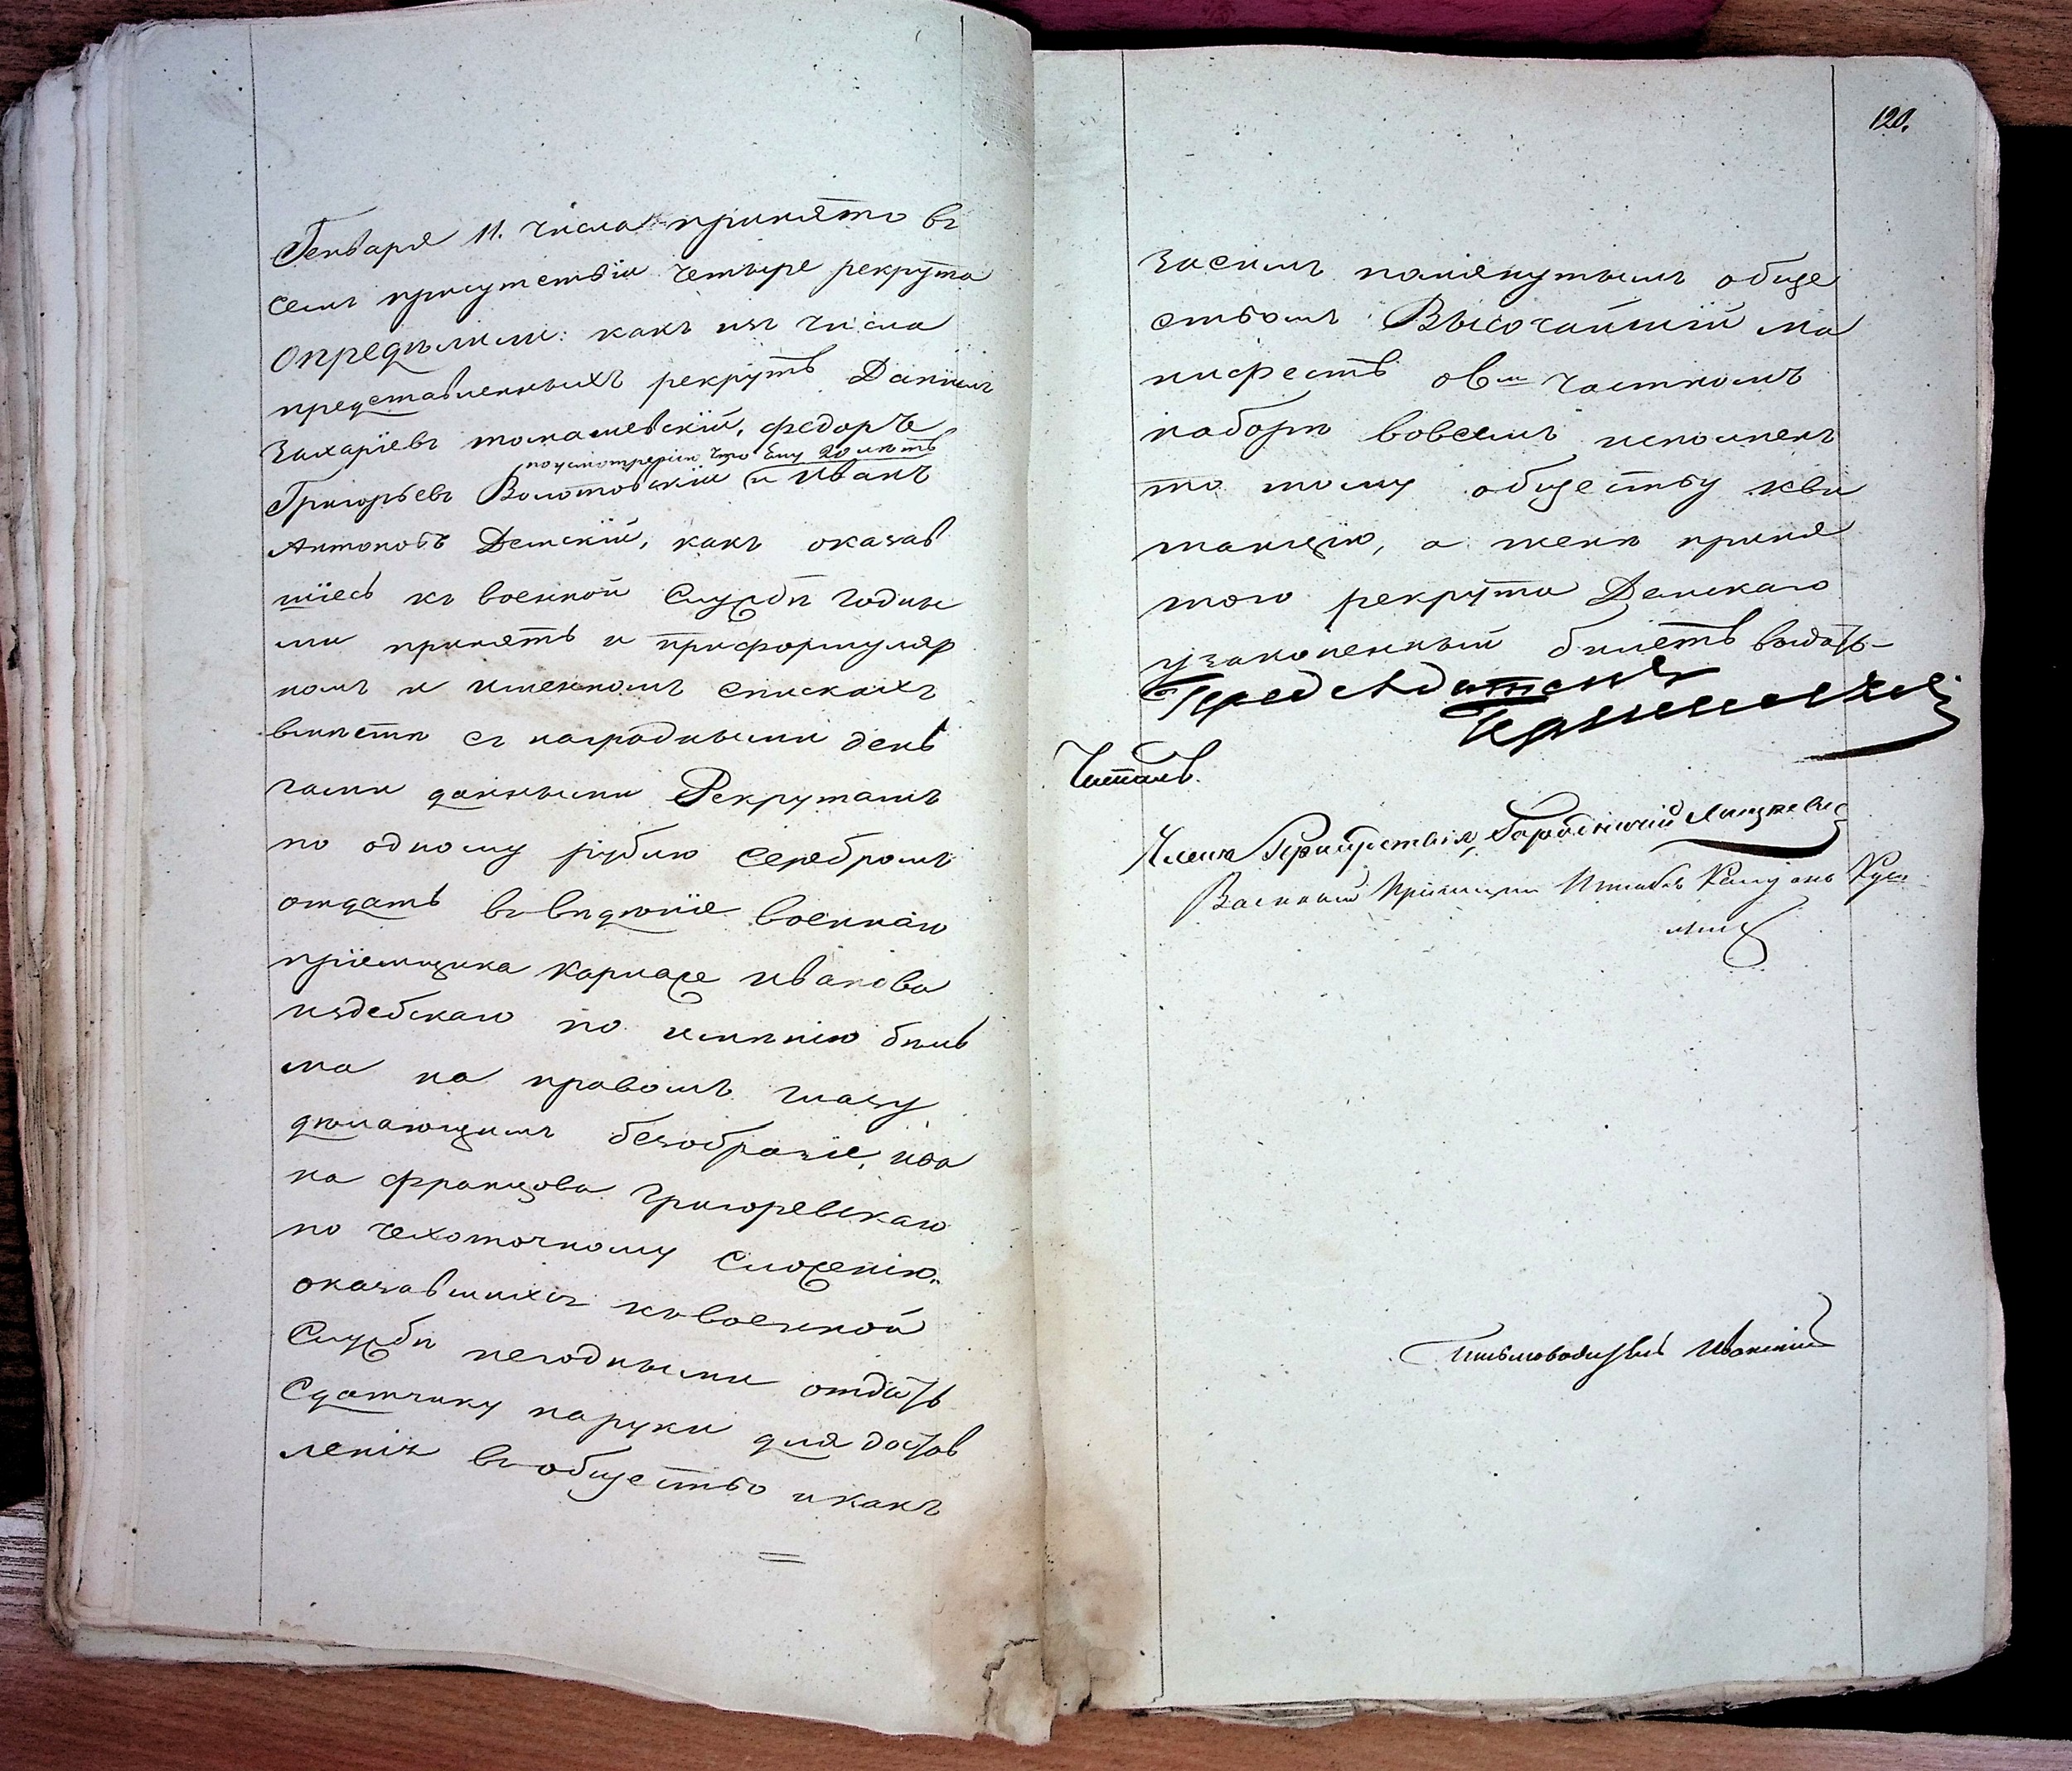 Генваря 11. числа принято въ
семъ присутствіи четыре рекрута
Опредѣлили: какъ изъ числа
представленныхъ рекрутъ Даніилъ
Захаріевъ томашевскій, федоръ
по усмотренію что ему 20 летъ
Григорьевъ Волотовскій и Иванъ
Антоновъ Демскій, какъ оказав
шіесь къ военной Службѣ годны
ми принять и при формуляр
номъ и именномъ спискахъ
вмѣстѣ съ наградными день
гами данными Рекрутамъ
по одному рублю серебромъ
отдать въ вѣдѣніе военнаго
пріемщика Карпаже Иванова
издебскаго по имѣнію бѣль
ма на правомъ глазу
дѣлающимъ безобразіе, ива
на францова Григоревскаго
по чехоточному Сложенію,
оказавшихся къ военной
Службѣ негодными отдать
Сдатчику на руки для достав
ленія въ общество и какъ
120.
Засимъ помянутымъ обще
ствомъ Высочайшій ма
нифестъ о 8м частномъ
наборѣ вовсемъ исполненъ
то тому обществу кви
танцію, а женѣ приня
того рекрута Демскаго
узаконенный билетъ выдать
Председатель
Читалъ
Члены Присутствія, Городничій
Военный Пріемщикъ Штабсъ Капитанъ
Письмоводитель Иванский